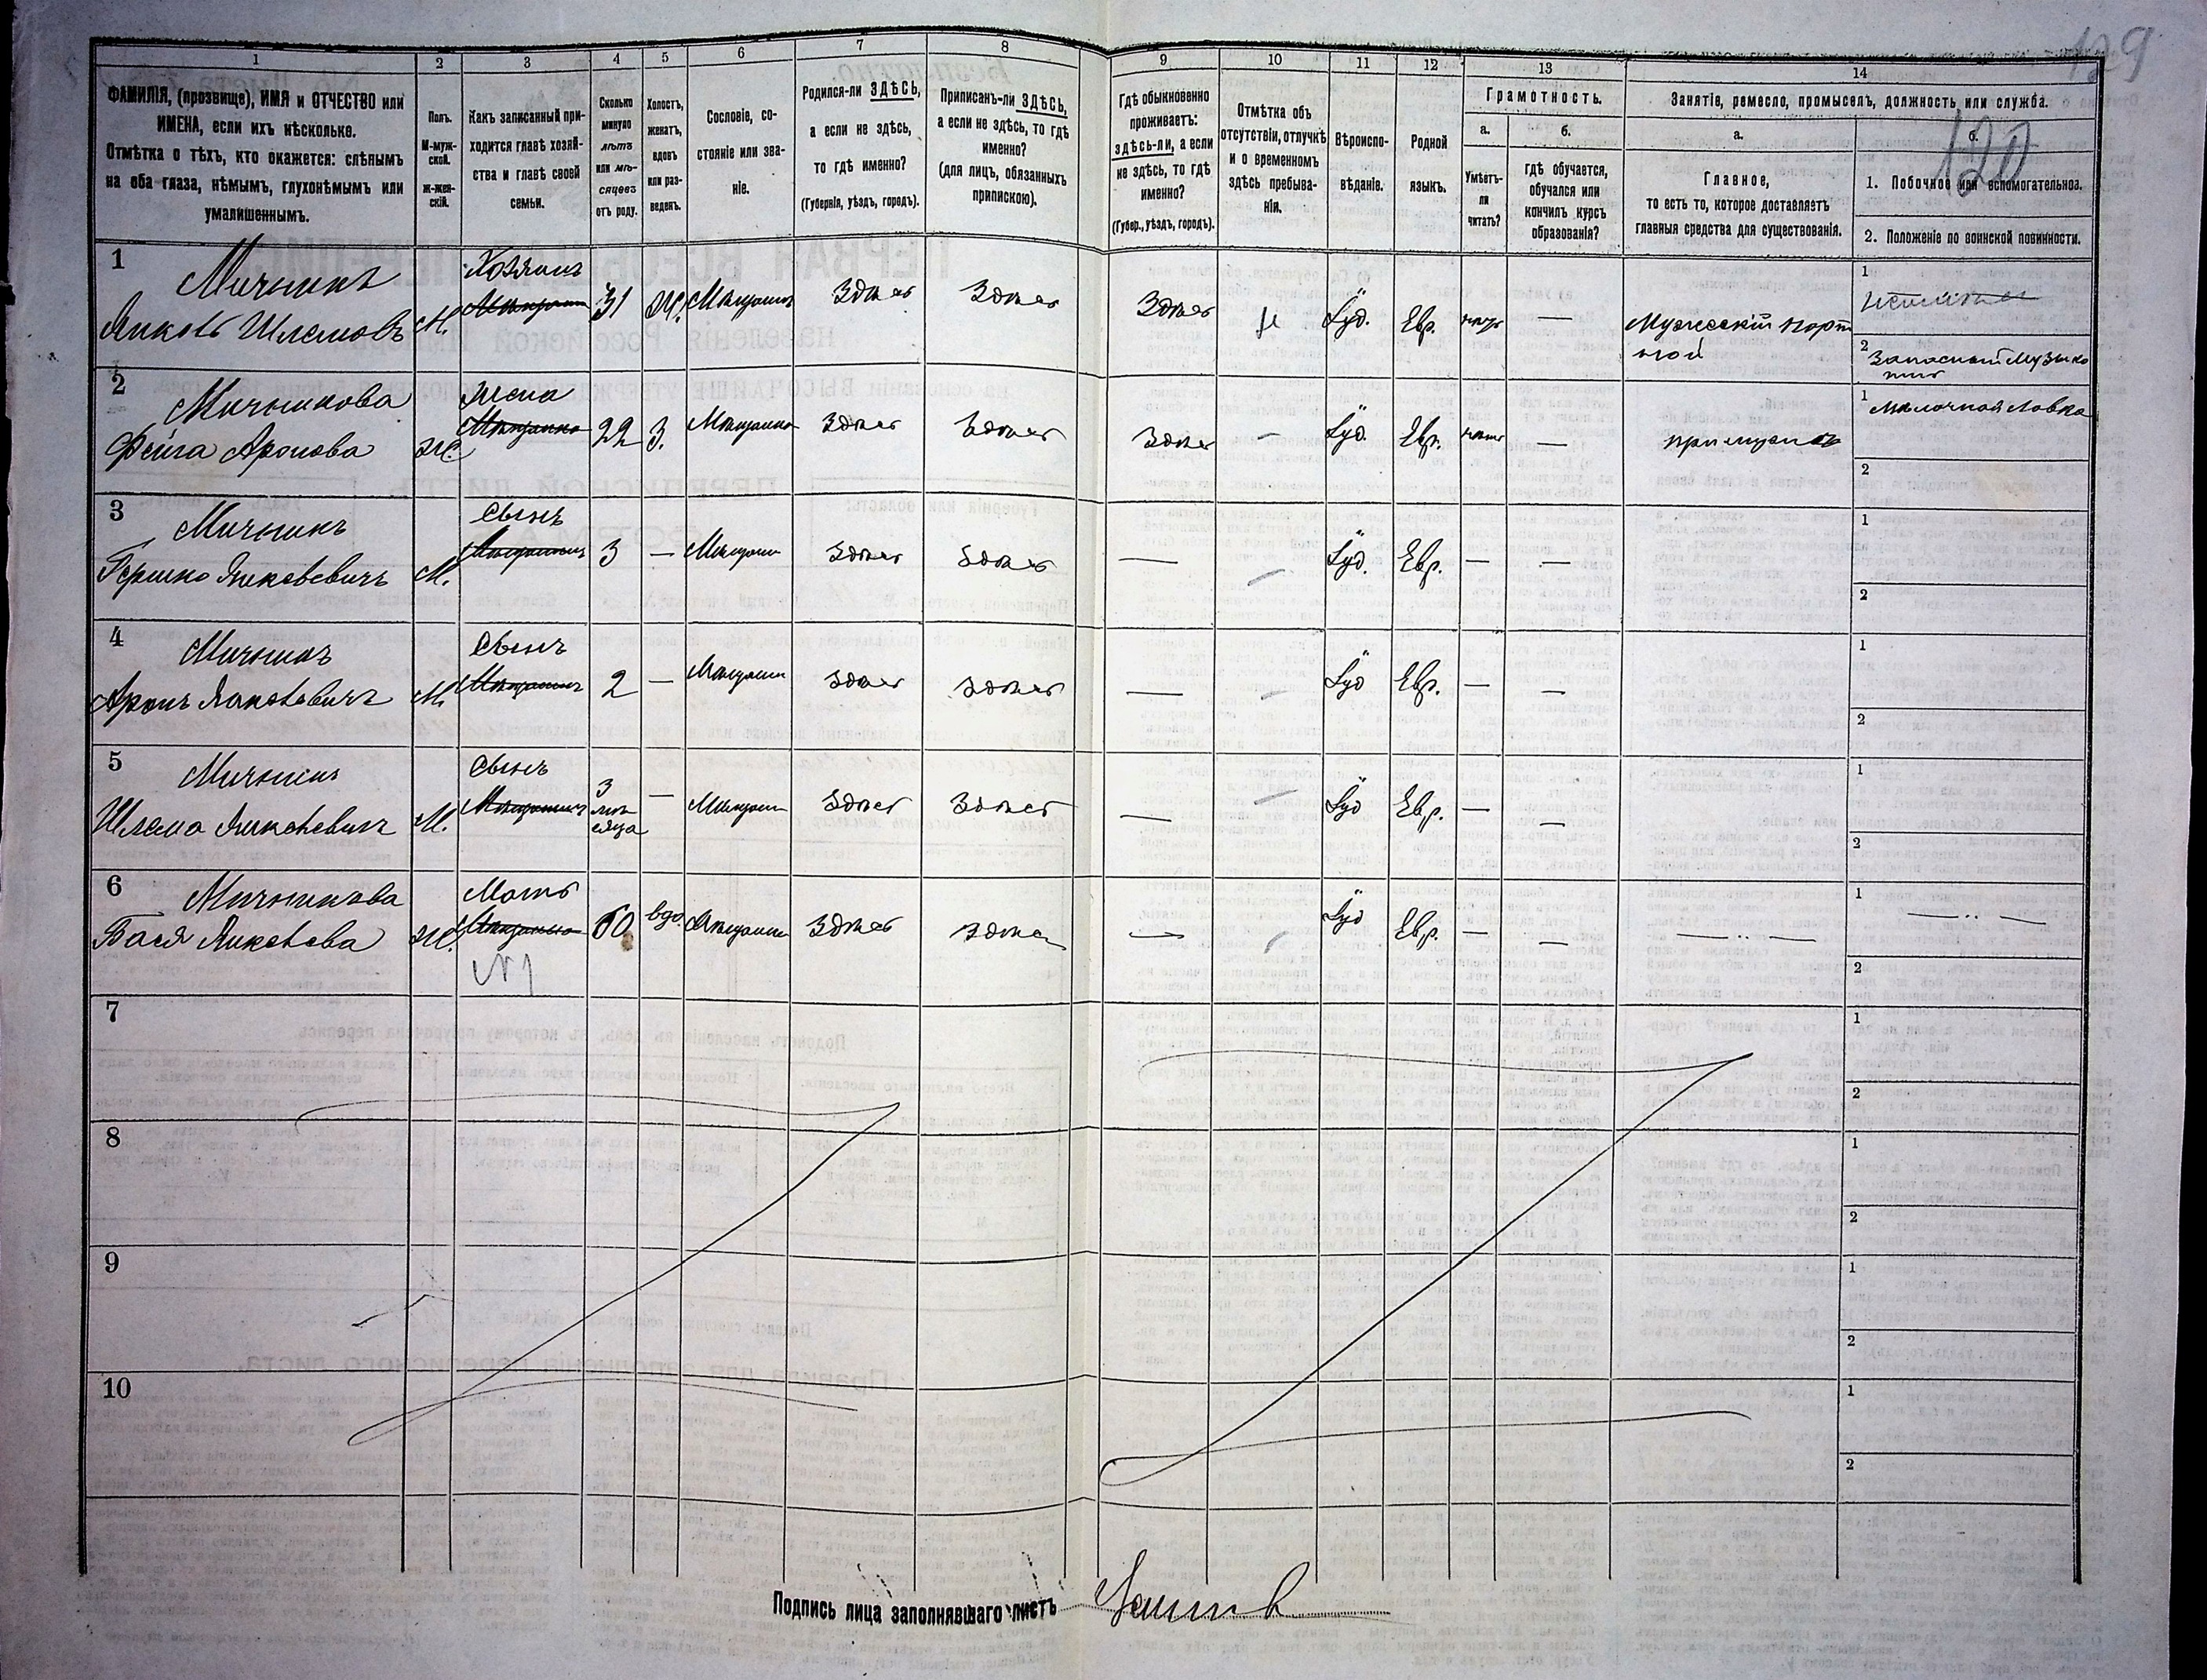 129
120
1 2 3 4 5 6 7 8 9 10 11 12 13 14
ФАМИЛІЯ, (прозвище), ИМЯ и ОТЧЕСТВО или
ИМЕНА, если ихъ нѣсколько.
Отмѣтка о тѣхъ, кто окажется: слѣпымъ
на оба глаза, нѣмымъ, глухонѣмымъ или
умалишеннымъ.
Полъ.
М-муж-
ской.
ж-жен-
скій.
Какъ записанный при-
ходится главѣ хозяй-
ства и главѣ своей
семьи.
Сколько
минуло
лѣтъ
или мѣ-
сяцевъ
отъ роду.
Холостъ,
женатъ,
вдовъ
или раз-
веденъ.
Сословіе, со-
стояніе или зва-
ніе.
Родился-ли ЗДѢСЬ,
а если не здѣсь,
то гдѣ именно?
(Губернія, уѣздъ, городъ).
Приписанъ-ли ЗДѢСЬ,
а если не здѣсь, то гдѣ
именно?
(для лицъ, обязанныхъ
припискою).
Гдѣ обыкновенно
проживаетъ:
здѣсь-ли, а если
не здѣсь, то гдѣ
именно?
(Губер., уѣздъ, городъ).
Отмѣтка объ
отсутствіи, отлучкѣ
и о временномъ
здѣсь пребыва-
ніи.
Вѣроиспо-
вѣданіе.
Родной
языкъ.
Грамотность.
а.
Умѣетъ-
ли
читать?
б.
гдѣ обучается,
обучался или
кончилъ курсъ
образованія?
Занятіе, ремесло, промыселъ, должность или служба.
а.
Главное,
то есть то, которое доставляетъ
главныя средства для существованія.
б.
1. Побочное или вспомогательное.
2. Положеніе по воинской повинности.
1
Мичникъ
Янкевъ Шлемовъ
М.
Хозяинъ
Мѣщанинъ
31
Ж.
Мѣщанинъ
Здѣсь
Здѣсь
Здѣсь
Іуд.
Евр.
—
Мужескій порт
ной
1
2 Запасный Музыка
нтъ
2
Мичникова
Фейга Аронова
Ж.
Жена
Мѣщанка
22
З.
Мѣщанка
Здѣсь
Здѣсь
Здѣсь
—
Іуд.
Евр.
—
при мужѣ
1 Мелочная Лавка
2
3
Мичникъ
Гершко Янкевевичъ
М.
Сынъ
Мѣщанинъ
3
—
Мѣщанин
Здѣсь
Здѣсь
—
—
Іуд.
Евр.
—
—
1
2
4
Мичникъ
Аронъ Янкевевичъ
М.
Сынъ
Мѣщанинъ
2
—
Мѣщанин
Здѣсь
Здѣсь
—
—
Іуд
Евр.
—
—
1
2
5
Мичникъ
Шлема Янкевевичъ
М.
Сынъ
Мѣщанинъ
3
мѣ
сяца
—
Мѣщанин
Здѣсь
Здѣсь
—
—
Іуд
Евр.
—
—
1
2
6
Мичникова
Бася Янкевева
Ж.
Мать
Мѣщанка
№ 1
60
вдо.
Мѣщанка
Здѣсь
Здѣсь
—
—
Іуд
Евр.
—
—
— .. —
1 — .. —
2
7
1
2
8
1
2
9
1
2
10
1
2
Подпись лица заполнявшаго листъ